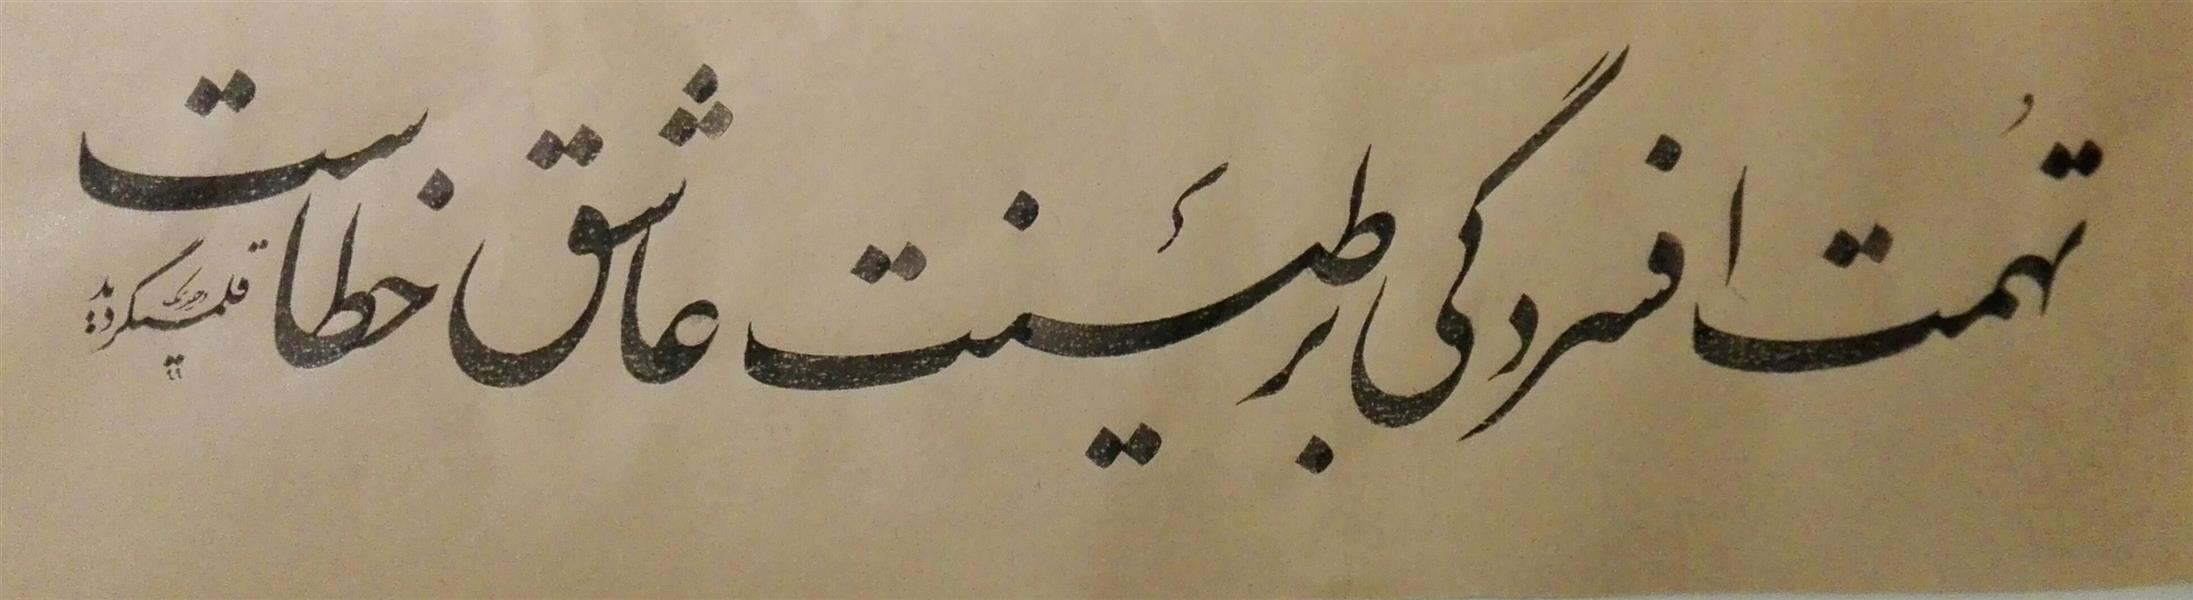 تهُمت افسردگی بر طینت عاشق خطاست
قلمی گردید
۹۹